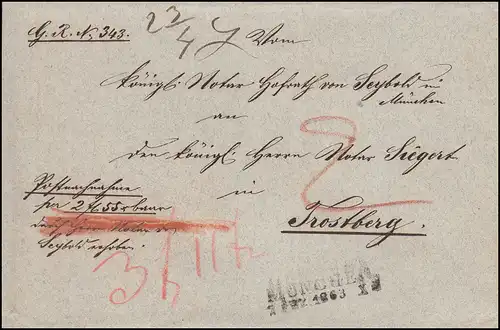 G. R. N: 343.
23/4
Vom
königl: Notar Hofrath von Seybold in
München
an
den königl: Herrn Notar Siegert
in
Trostberg.
Postnachnahme
per 2 f 55 x baar
durch Herr Notar
Seybold erhoben.
2
3/4
MÜNCHEN
1863